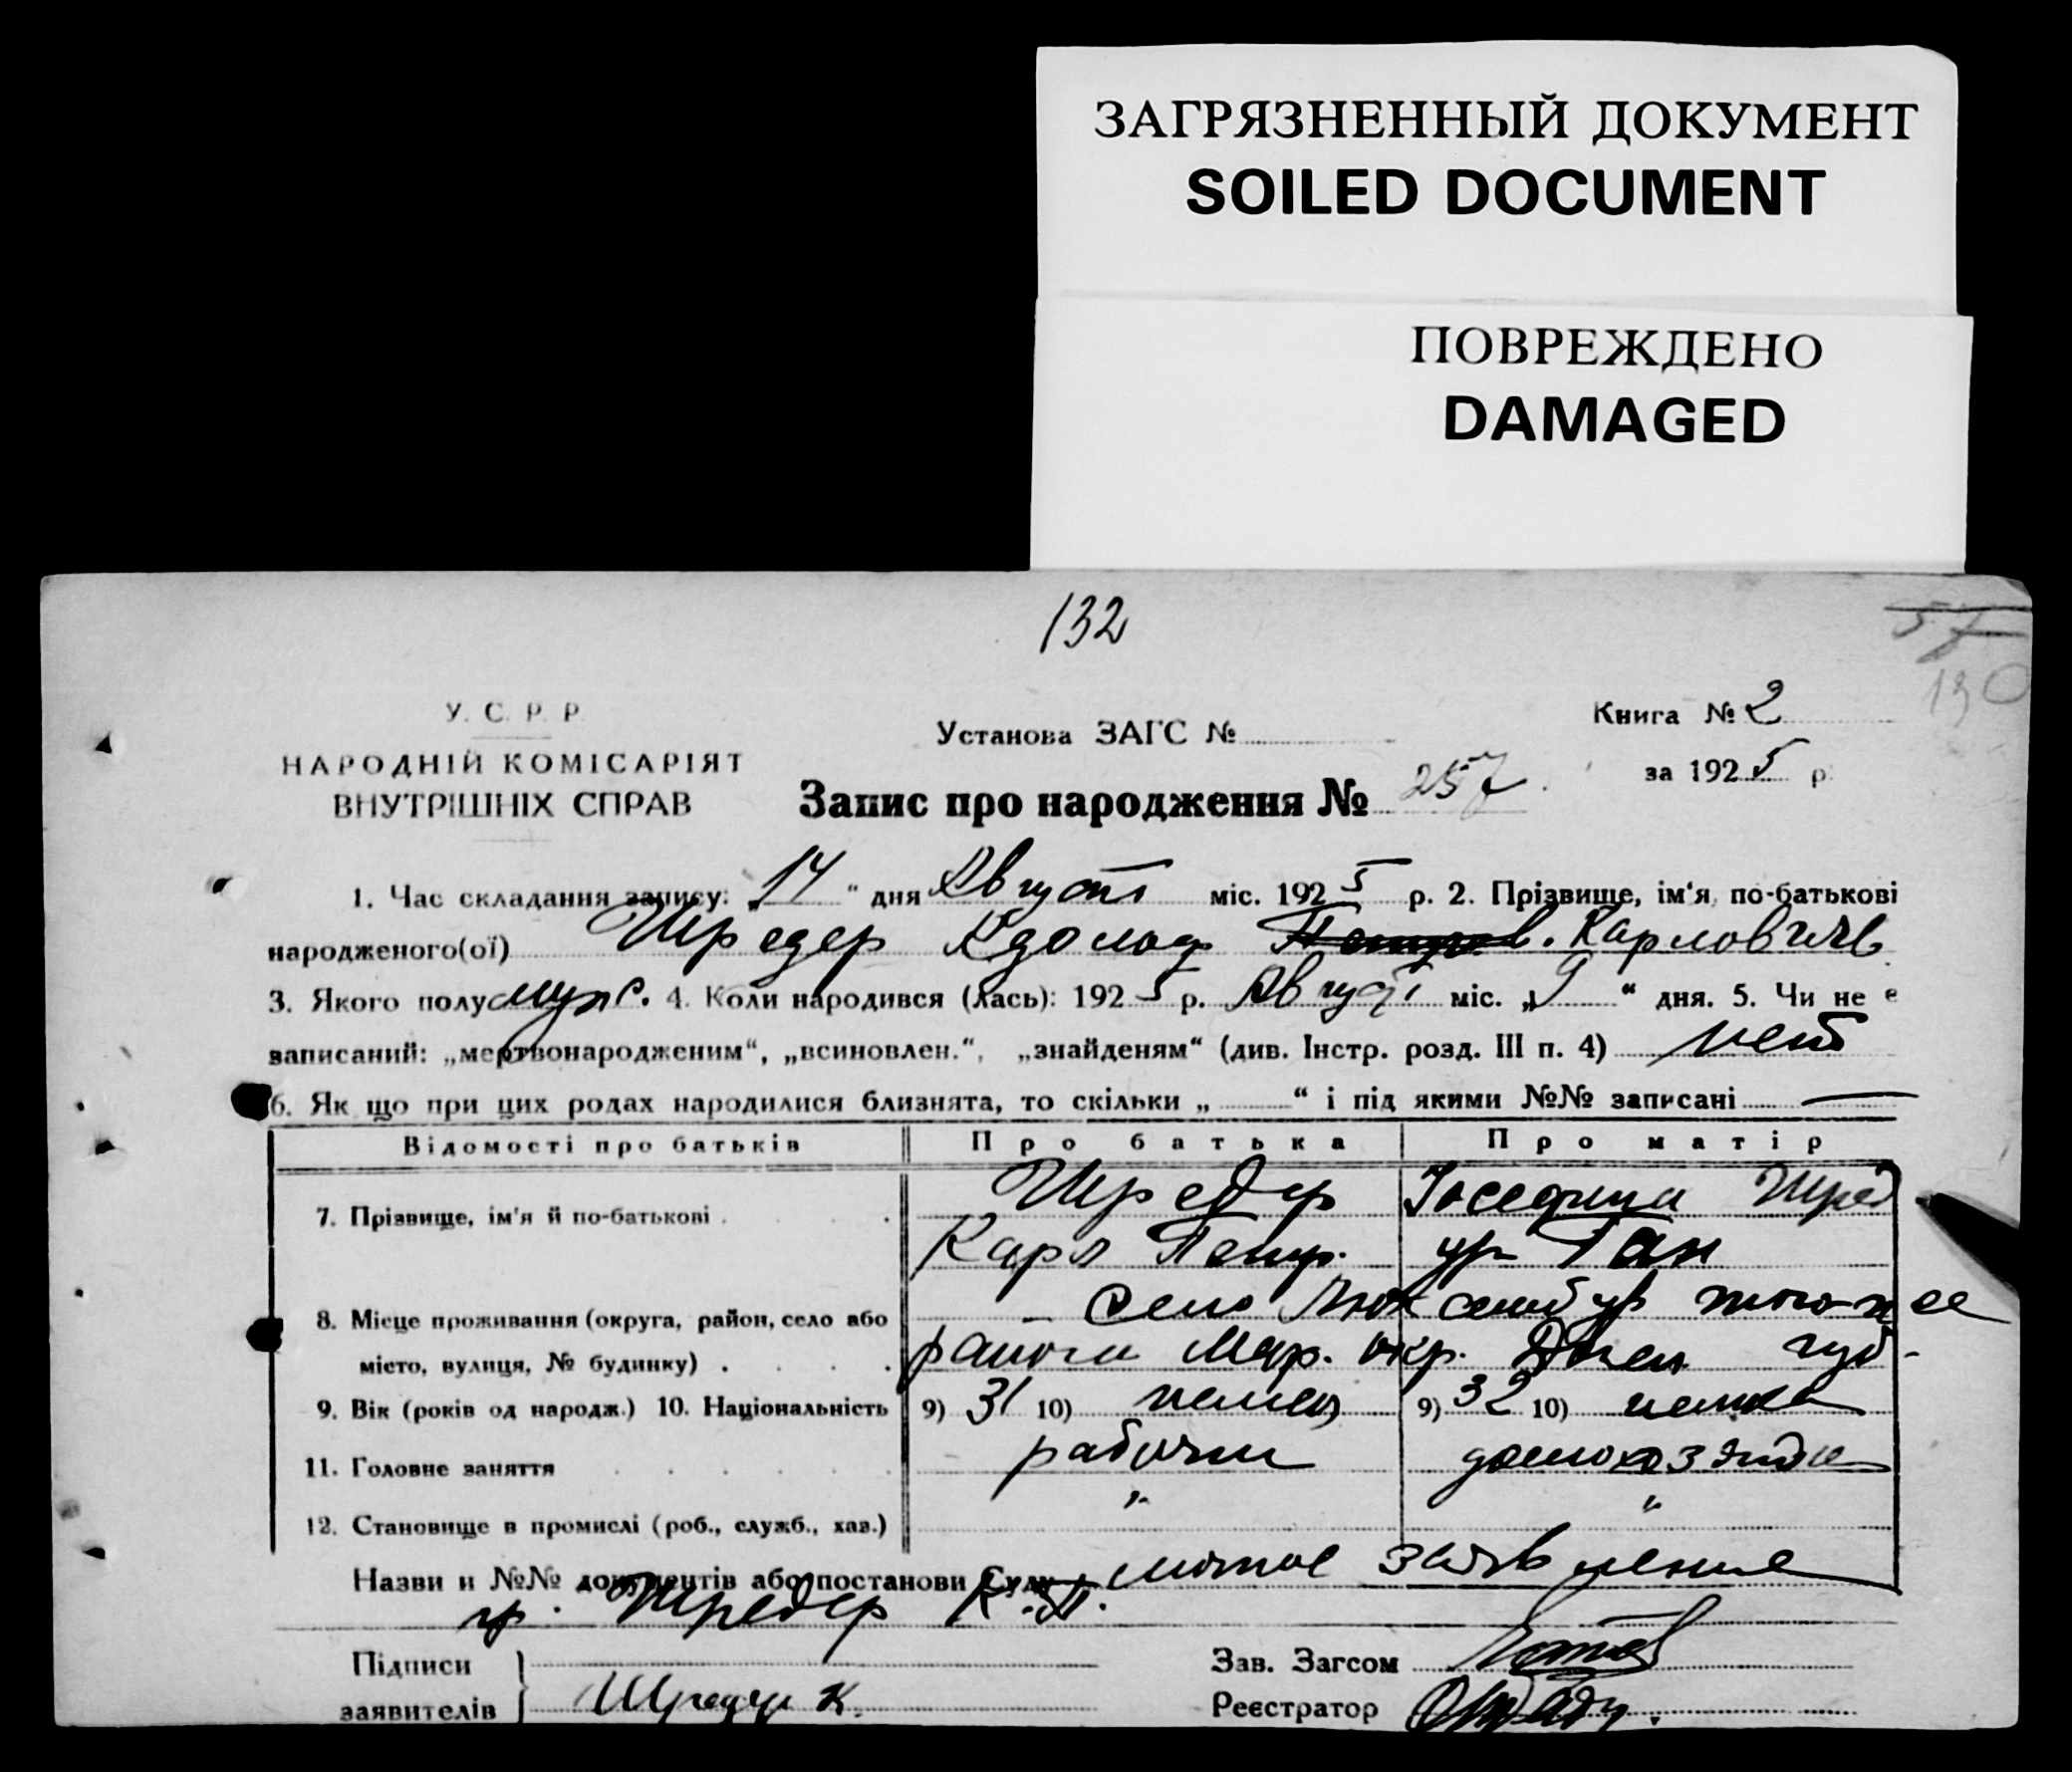 ЗАГРЯЗНЕННЫЙ ДОКУМЕНТ
SOILED DOCUMENT
ПОВРЕЖДЕНО
DAMAGED
132
57
130
У. С. Р. Р.
Книга № 2
Установа ЗАГС №
НАРОДНІЙ КОМІСАРІЯТ
за 1925 р.
ВНУТРІШНІХ СПРАВ
Запис про народження № 257.
1. Час складання запису: „14“ дня Август міс. 1925 р. 2. Прізвище, ім‘я, по-батькові
народженого(ої) Шредер Адольф Карлович
3. Якого полу муж. 4. Коли народився (лась): 1925 р. Август міс. „9“ дня. 5. Чи не є
записаний: „мертвонародженим“, „всиновлен.“, „знайденям“ (див. Інстр. розд. III п. 4) нет
6. Як що при цих родах народилися близнята, то скільки „ “ і під якими №№ записані —
Відомості про батьків Про батька Про матір
7. Прізвище, ім‘я й по-батькові Шредер Шред
Карл Петр. ур Ган
8. Місце проживання (округа, район, село або Село Люксембург того-же
місто, вулиця, № будинку) района Мар. окр. губ-
9. Вік (років од народж.) 10. Національність 9) 31 10) немец 9) 32 10) немка
11. Головне заняття рабочий домохозяйка
12. Становище в промислі (роб., служб., хаз.) " "
Назви и №№ документів або постанови Суду заявление
гр. Шредер К. П.
Підписи Зав. Загсом
заявителів Шредер К. Реєстратор